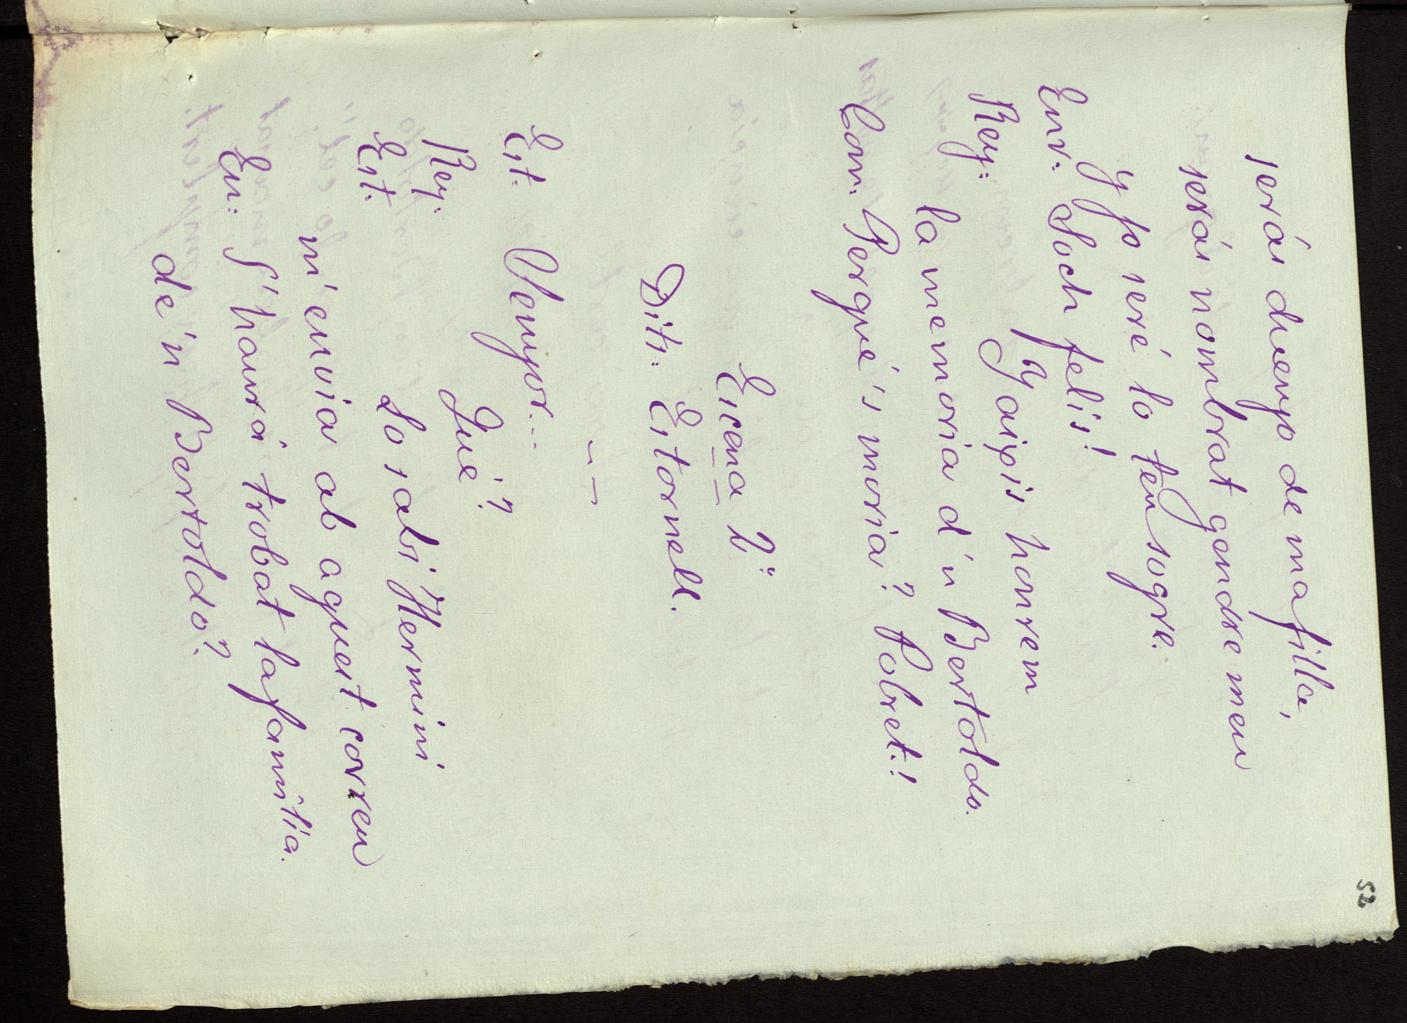 52
serás duenyo de ma filla,
serás nombrat gendre meu
y jo seré lo teu sogre.
Enr. Soch felis!
Rey: Y aixis honrem
la memoria d'n Bertoldo.
Com. Perqué's moria? Pobret!
Escena 2ª
Dits. Estornell.
Est. Senyor...
Rey. Qué?
Est. Lo sabi Hermini
m'envia ab aquest correu
En: S'haurá trobat la familia.
de'n Bertoldo?